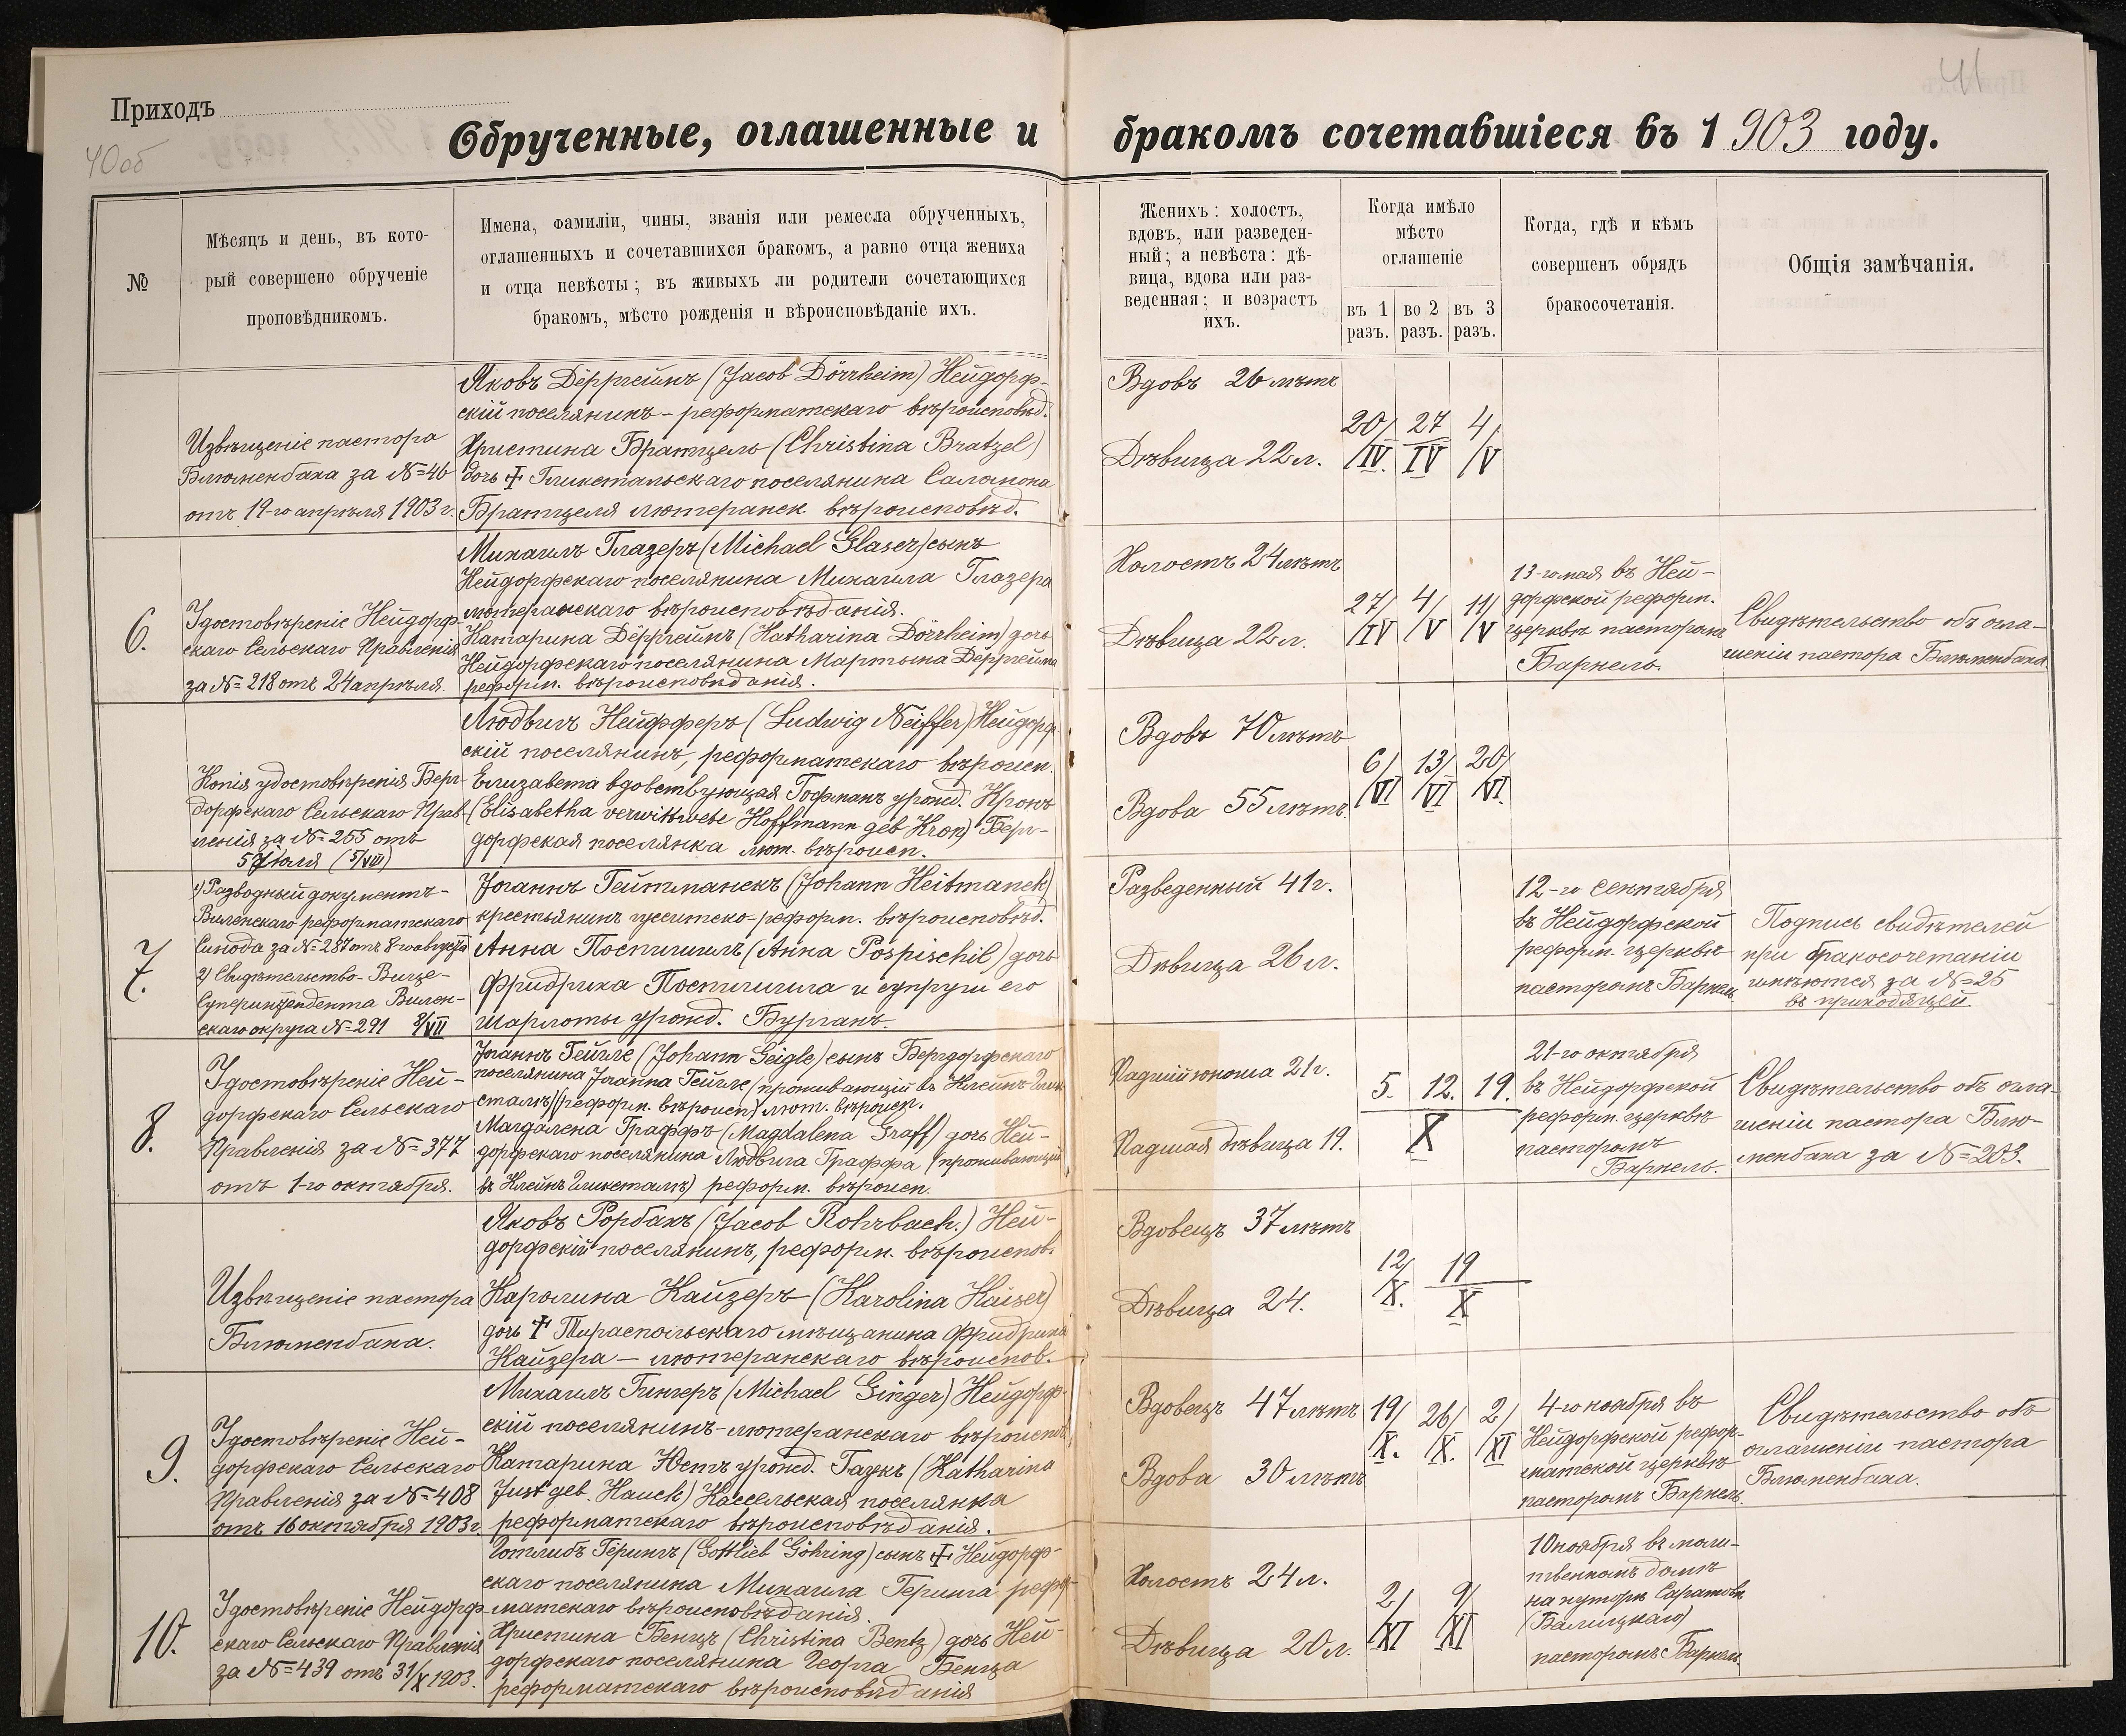 Приходъ
40об
41
Обрученные, оглашенные и бракомъ сочетавшіеся въ 1903 году.
№
Мѣсяцъ и день, въ кото-
рый совершено обрученіе
проповѣдникомъ.
Имена, фамиліи, чины, званія или ремесла обрученныхъ,
оглашенныхъ и сочетавшихся бракомъ, а равно отца жениха
и отца невѣсты; въ живыхъ ли родители сочетающихся
бракомъ, мѣсто рожденія и вѣроисповѣданіе ихъ.
Женихъ: холостъ,
вдовъ, или разведен-
ный; а невѣста: дѣ-
вица, вдова или раз-
веденная; и возрастъ
ихъ.
Когда имѣло
мѣсто
оглашеніе
въ 1 разъ.
во 2 разъ.
въ 3 разъ.
Когда, гдѣ и кѣмъ
совершенъ обрядъ
бракосочетанія.
Общія замѣчанія.
Извѣщеніе пастора
Блюменбаха за №=46
отъ 19-го апрѣля 1903 г.
Яковъ Дёрргеймъ (Jacob Dörrheim) Нейдорф-
скій поселянинъ - реформатскаго вѣроисповѣд.
Христина Братцель (Christina Bratzel)
дочь ☩ Гликстальскаго поселянина Саломона
Братцеля лютеранск. вѣроисповѣд.
Вдовъ 26 лѣтъ
Дѣвица 22 л.
20/IV. 27/IV 4/V
6.
Удостовѣреніе Нейдорф-
скаго Сельскаго Правленія
за №=218 отъ 24 апрѣля.
Михаилъ Глазеръ (Michael Glaser) сынъ
Нейдорфскаго поселянина Михаила Глазера
лютеранскаго вѣроисповѣданія.
Катарина Дёрргеймъ (Katharina Dörrheim) дочь
Нейдорфскаго поселянина Мартына Дёрргейма
реформ. вѣроисповѣданія.
Холостъ 24 лѣтъ
Дѣвица 22 л.
27/IV 4/V 11/V
13-го мая въ Ней-
дорфской реформ.
церквѣ пасторомъ
Баркель.
Свидѣтельство объ огла-
шеніи пастора Блюменбаха.
Копія удостовѣренія Берг-
дорфскаго Сельскаго Прав-
ленія за №=255 отъ
5 Іюля (5/VII)
Людвигъ Нейфферъ (Ludwig Neiffer) Нейдорф-
скій поселянинъ, реформатскаго вѣроисп.
Елизавета вдовствующая Гофманъ урожд. Кронъ
(Elisabetha verwittwete Hoffmann geb Kron) Берг-
дорфская поселянка лют. вѣроисп.
Вдовъ 70 лѣтъ
Вдова 55 лѣтъ.
6/VI 13/VI 20/VI.
7.
1) Разводный документъ -
Виленскаго реформатскаго
Синода за №=287 отъ 8-го августа
2) Свидѣтельство - Вице-
Суперинтендента Вилен-
скаго округа №=291 8/VII
Іоганнъ Гейтманекъ (Johann Heitmanek)
крестьянинъ гуситско-реформ. вѣроисповѣд.
Анна Поспишилъ (Anna Pospischil) дочь
Фридриха Поспишила и супруги его
Шарлоты урожд. Бурганъ.
Разведенный 41 г.
Дѣвица 26 л.
12-го сентября
въ Нейдорфской
реформ. церквѣ
пасторомъ Баркель
Подпись свидѣтелей
при бракосочетаніи
имѣются за №=25
въ приходящей.
8.
Удостовѣреніе Ней-
дорфскаго Сельскаго
Правленія за №=377
отъ 1-го октября.
Іоганнъ Гейгле (Johann Geigle) сынъ Бергдорфскаго
поселянина Іоанна Гейгле (проживающій въ Клейнъ-Глик-
сталѣ) (реформ. вѣроисп.) лют. вѣроисп.
Магдалена Граффъ (Magdalena Graff) дочь Ней-
дорфскаго поселянина Людвига Граффа (проживающій
въ Клейнъ Гликсталѣ) реформ. вѣроисп.
Падшій юноша 21 г.
Падшая дѣвица 19.
5. 12. 19.
X
21-го октября
въ Нейдорфской
реформ. церквѣ
пасторомъ
Баркель.
Свидѣтельство объ огла-
шеніи пастора Блю-
менбаха за №=203.
Извѣщеніе пастора
Блюменбаха.
Яковъ Рорбахъ (Jacob Rohrbach.) Ней-
дорфскій поселянинъ, реформ. вѣроиспов.
Каролина Кайзеръ (Karolina Kaiser)
дочь ☩ Тираспольскаго мѣщанина Фридриха
Кайзера - лютеранскаго вѣроиспов.
Вдовецъ 37 лѣтъ
Дѣвица 24.
12/X. 19/X
9.
Удостовѣреніе Ней-
дорфскаго Сельскаго
Правленія за №=408
отъ 16 октября 1903 г.
Михаилъ Гингеръ (Michael Ginger) Нейдорф-
скій поселянинъ - лютеранскаго вѣроиспов.
Катарина Юстъ урожд. Гаукъ (Katharina
Just geb. Hauck) Кассельская поселянка
реформатскаго вѣроисповѣданія.
Вдовецъ 47 лѣтъ
Вдова 30 лѣтъ
19/X. 26/X. 2/XI
4-го ноября въ
Нейдорфской рефор-
матской церквѣ
пасторомъ Баркель.
Свидѣтельство объ
оглашеніи пастора
Блюменбаха.
10.
Удостовѣреніе Нейдорф-
скаго Сельскаго Правленія
за №=439 отъ 31/X 1903.
Готлибъ Герингъ (Gottlieb Göhring) сынъ ☩ Нейдорф-
скаго поселянина Михаила Геринга рефор-
матскаго вѣроисповѣданія.
Христина Бенцъ (Christina Bentz) дочь Ней-
дорфскаго поселянина Георга Бенца
реформатскаго вѣроисповѣданія
Холостъ 24 л.
Дѣвица 20 л.
2/XI 9/XI
10 ноября въ моли-
твенномъ домѣ
на хуторѣ Саратовѣ
(Балицкаго)
пасторомъ Баркель.